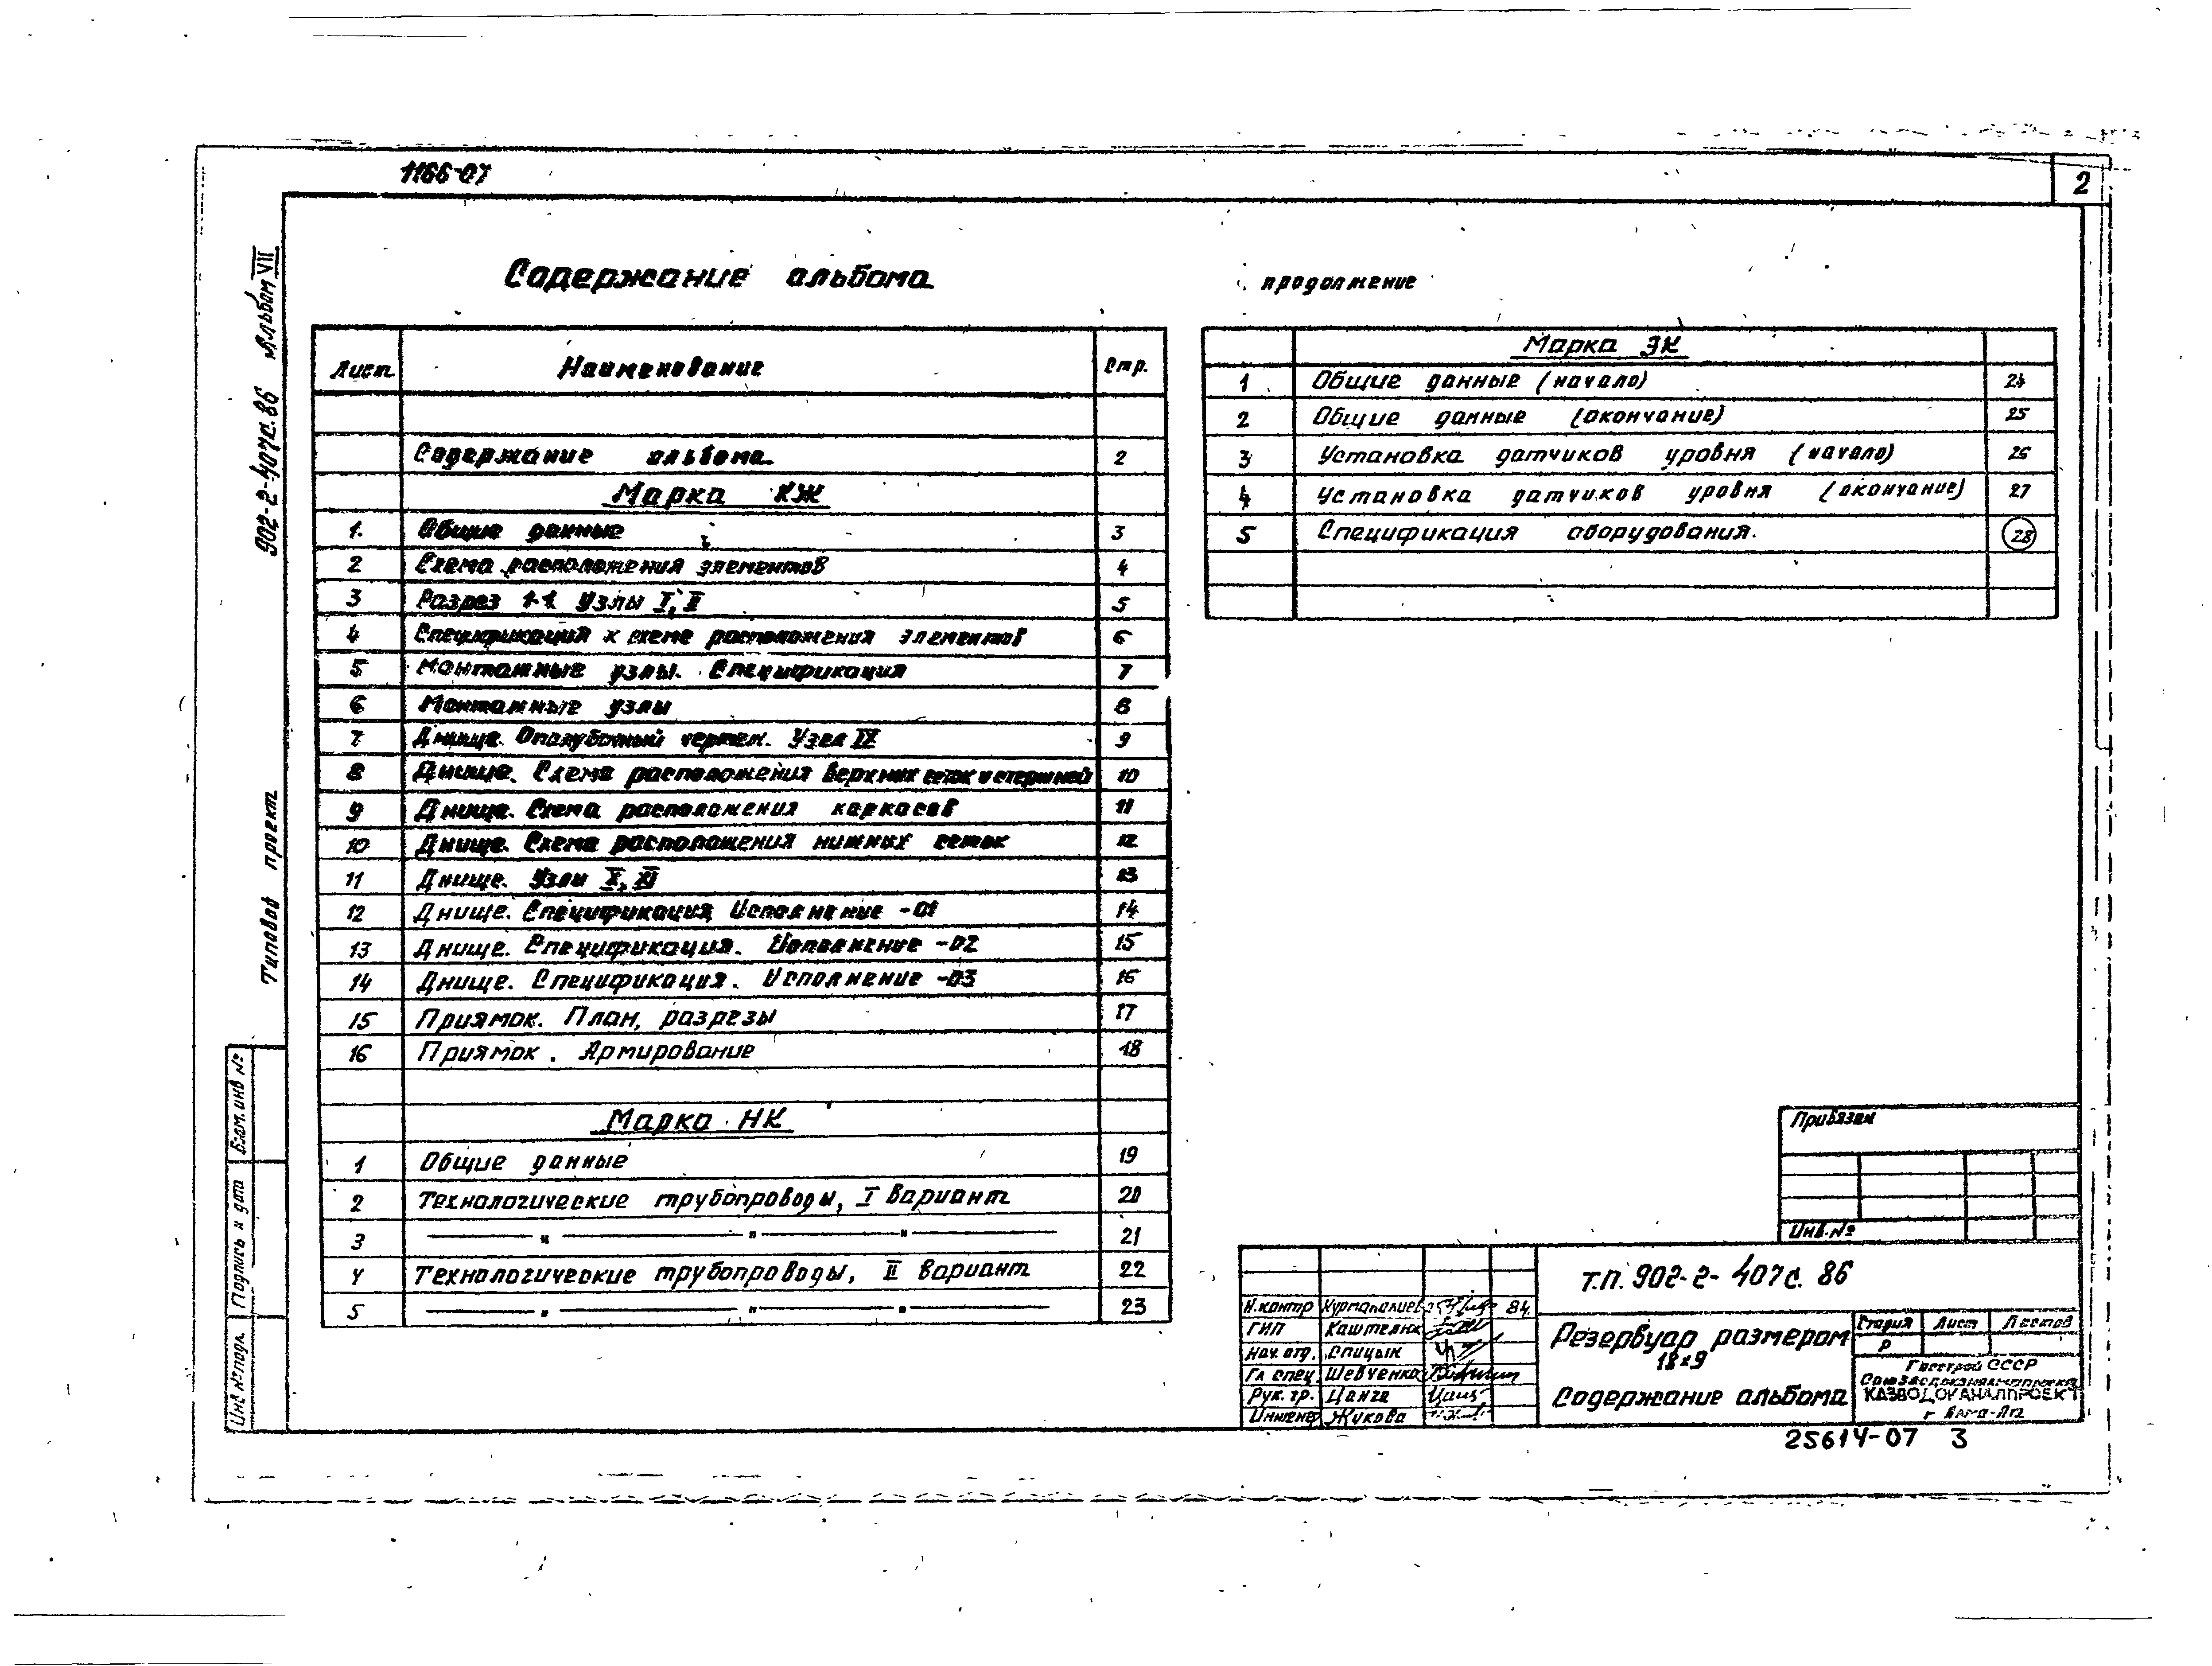 1166-07
2
Содержание альбома
продолжение
Лист Наименование Стр.
Содержание альбома. 2
Марка КЖ
1. Общие данные 3
2 Схема расположения элементов 4
3 Разрез 1-1. Узлы I, II 5
4 Спецификация к схеме расположения элементов 6
5 Монтажные узлы. Спецификация 7
6 Монтажные узлы 8
7 Днище. Опалубочный чертеж. Узел IX 9
8 Днище. Схема расположения верхних сеток и стержней 10
9 Днище. Схема расположения каркасов 11
10 Днище. Схема расположения нижних сеток 12
11 Днище. Узлы X, XI 13
12 Днище. Спецификация. Исполнение -01 14
13 Днище. Спецификация. Исполнение -02 15
14 Днище. Спецификация. Исполнение -03 16
15 Приямок. План, разрезы 17
16 Приямок. Армирование 18
Марка НК
1 Общие данные 19
2 Технологические трубопроводы, I вариант 20
3 —"—"—"— 21
4 Технологические трубопроводы, II вариант 22
5 —"—"—"— 23
Марка ЭК
1 Общие данные (начало) 24
2 Общие данные (окончание) 25
3 Установка датчиков уровня (начало) 26
4 Установка датчиков уровня (окончание) 27
5 Спецификация оборудования. 28
Типовой проект 902-2-407с.86 Альбом VII
Инв.№подл. Подпись и дата Взам.инв №
Привязан
Инв.№
Н.контр Курмапалиев 84.
ГИП Каштелюк
Нач. отд. Спицын
Гл спец. Шевченко
Рук. гр. Цанга
Инженер Жукова
Т.П. 902-2-407с. 86
Резервуар размером
18х9
Содержание альбома
Стадия Лист Листов
Р
Госстрой СССР
Союзводоканалпроект
КАЗВОДОКАНАЛПРОЕКТ
г Алма-Ата
25614-07 3